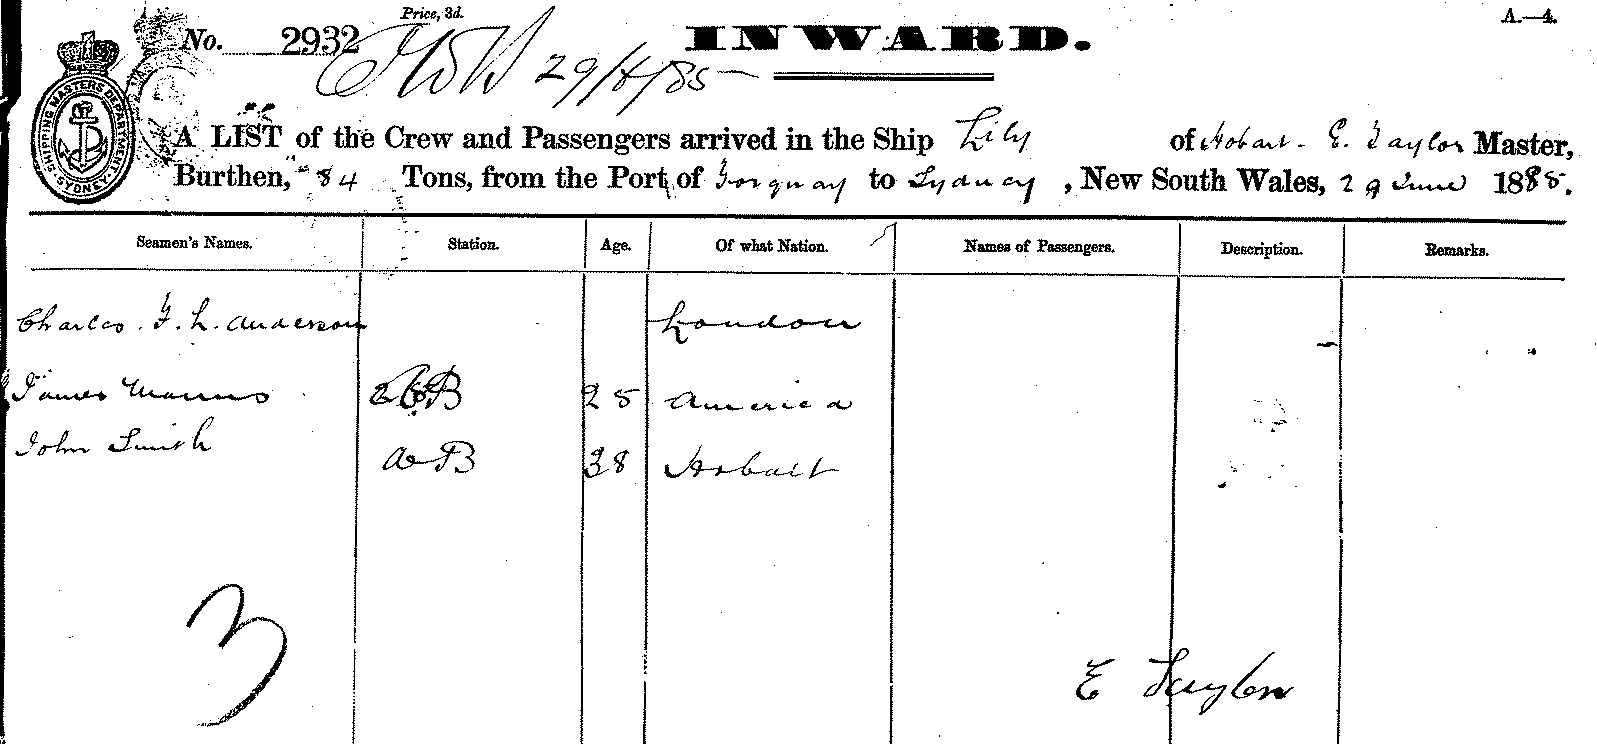 Price, 3d.
A.—4.
No. 2932
INWARD.
29/6/85
SHIPPING MASTERS DEPARTMENT SYDNEY
A LIST of the Crew and Passengers arrived in the Ship Lily of Hobart - E. Taylor Master,
Burthen, 84 Tons, from the Port of Torquay to Sydney, New South Wales, 29 June 1885.
Seamen's Names. Station. Age. Of what Nation. Names of Passengers. Description. Remarks.
Charles. F. L. Anderson London
James AB 28 America
John Smith AB 38 Hobart
3
E Taylor